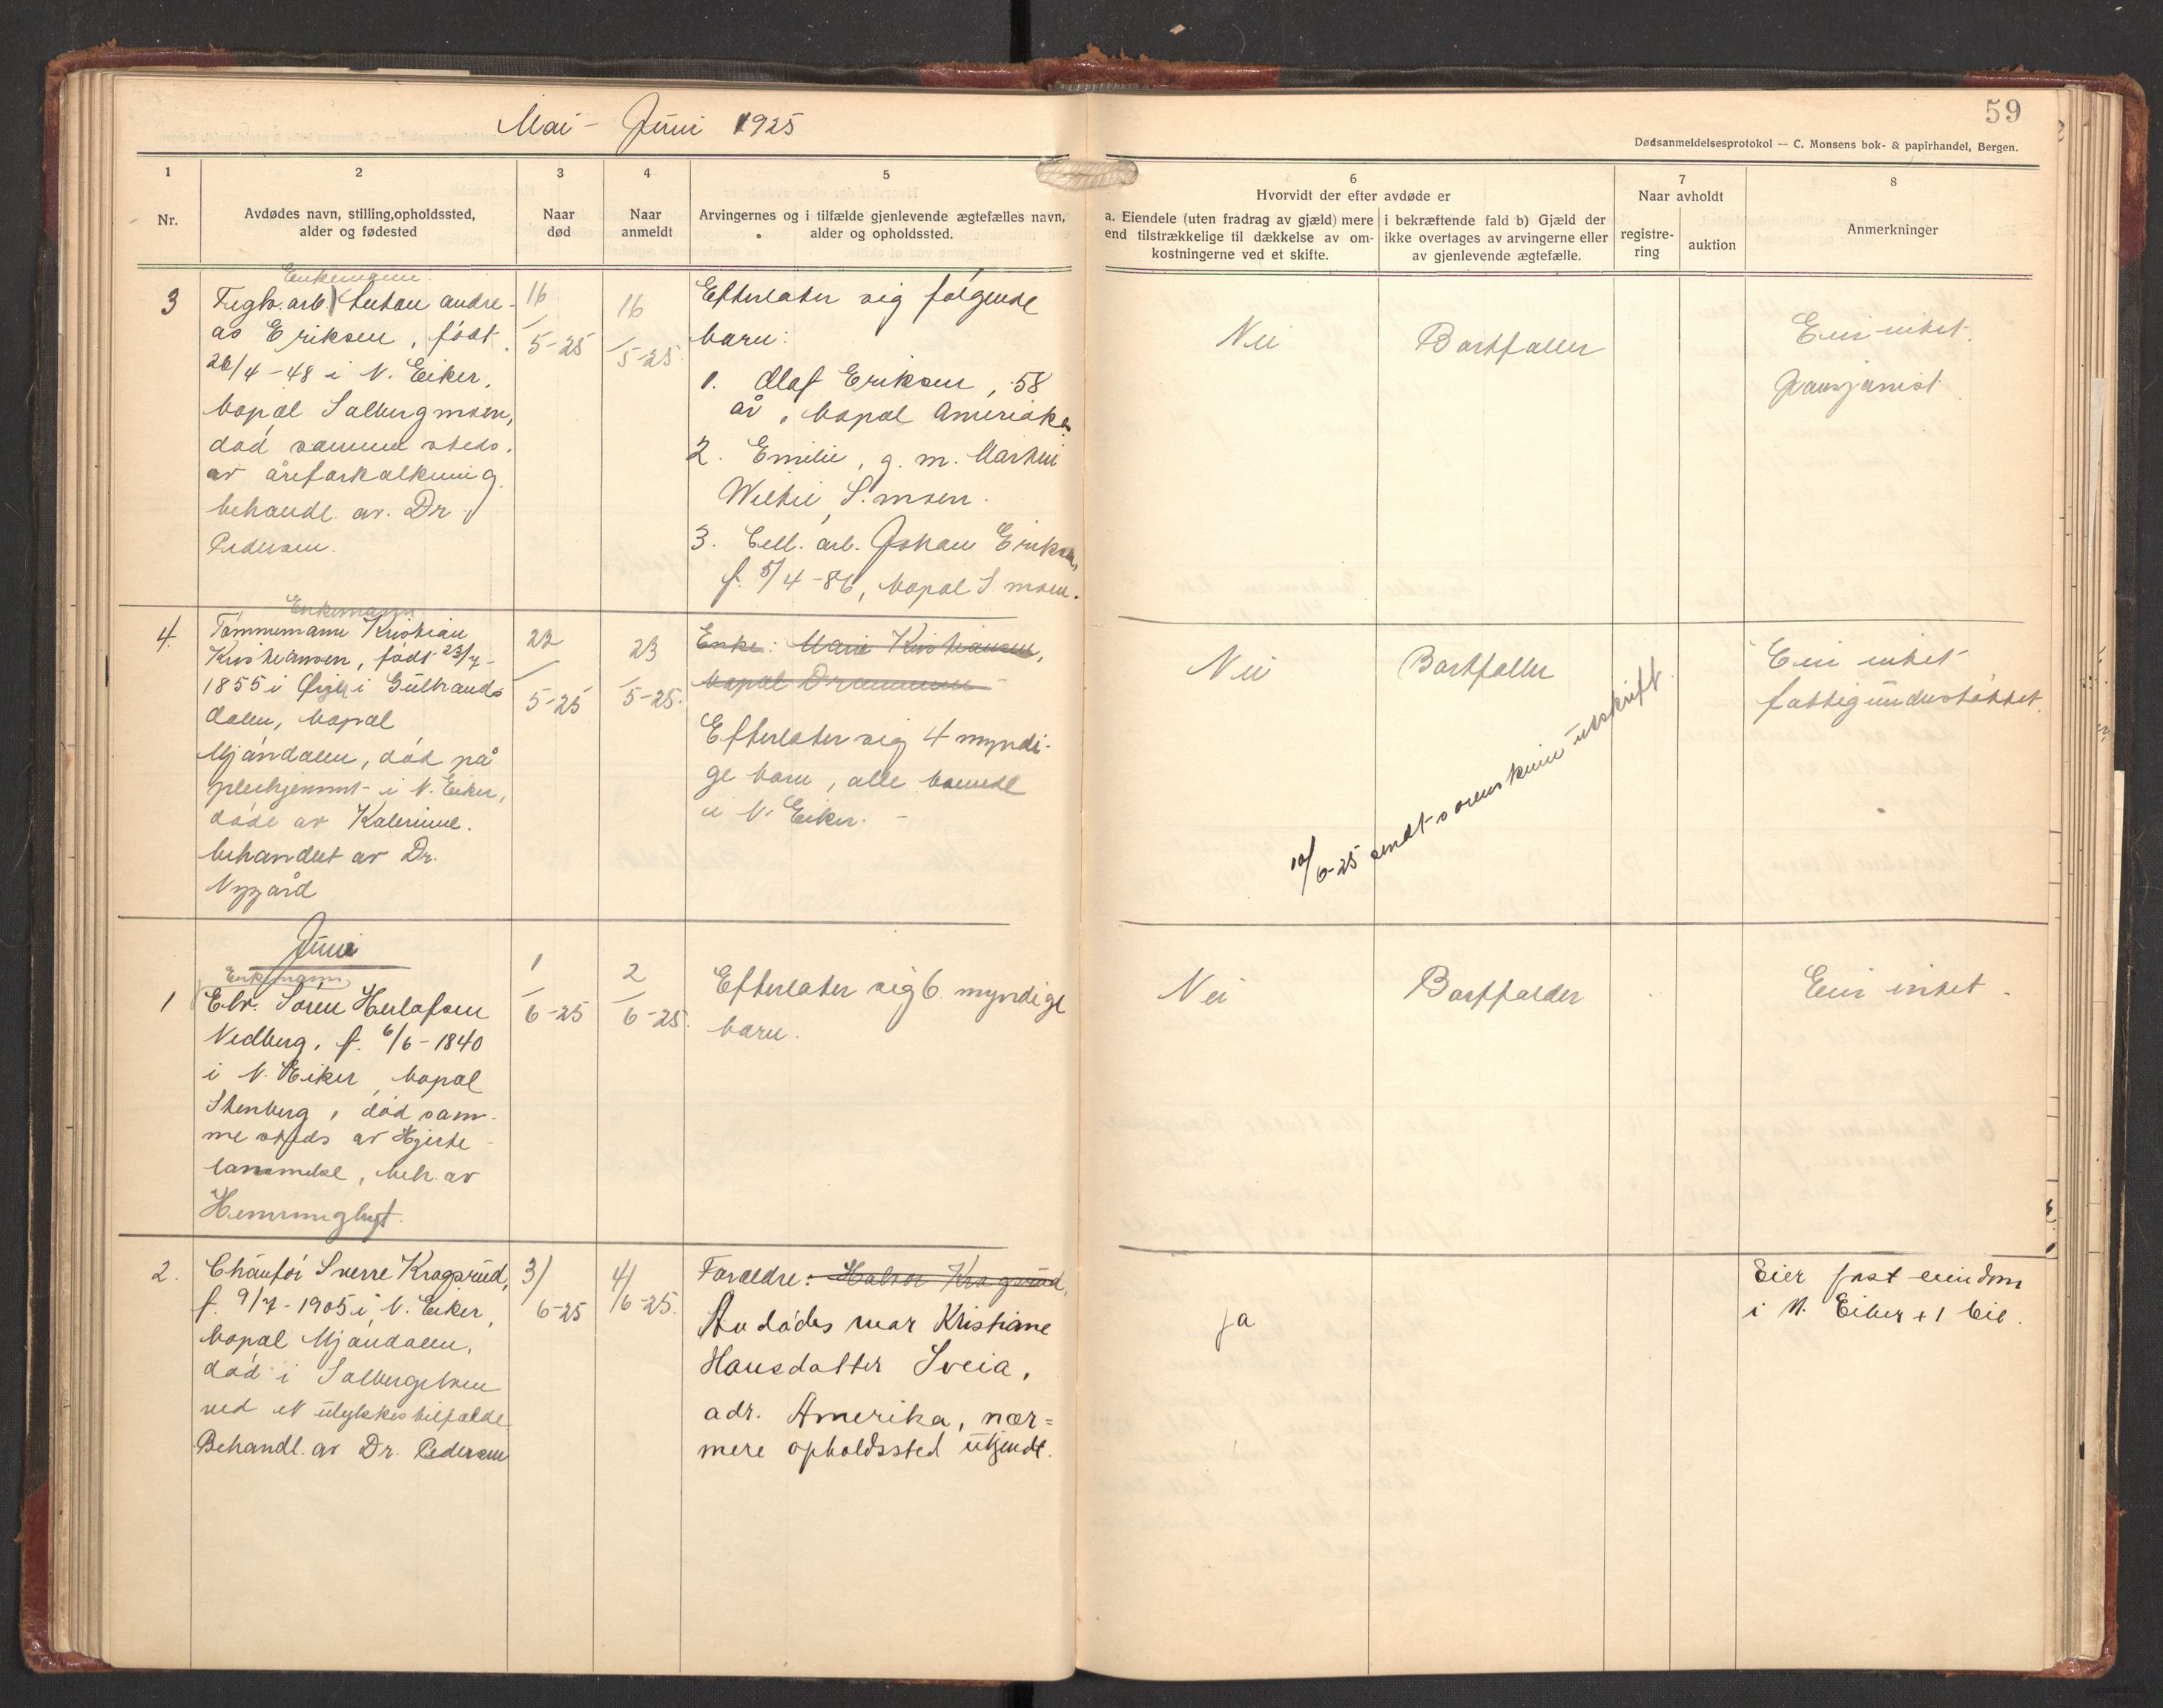 Mai - Juni 1925
59
Dødsanmeldelsesprotokol — C. Monsens bok- & papirhandel, Bergen.
1
Nr.
2
Avdødes navn, stilling, opholdssted,
alder og fødested
3
Naar
død
4
Naar
anmeldt
5
Arvingernes og i tilfælde gjenlevende ægtefælles navn,
alder og opholdssted.
6
Hvorvidt der efter avdøde er
a. Eiendele (uten fradrag av gjæld) mere
end tilstrækkelige til dækkelse av om-
kostningerne ved et skifte.
i bekræftende fald b) Gjæld der
ikke overtages av arvingerne eller
av gjenlevende ægtefælle.
7
Naar avholdt
registre-
ring
auktion
8
Anmerkninger
3
Enkemann
arb. Anton Andre-
as Eriksen, født
26/4-48 i N. Eiker,
bopæl Solbergmoen,
død samme steds.
av åreforkalkning
behandl. av. Dr.
Pedersen.
16/5-25
16/5-25.
Efterlater sig følgende
barn:
1. Olaf Eriksen, 58
år, bopæl Amerioka
2. Emilie, g. m. Martin
S.moen.
3. Cell. arb. Johan Eriksen,
f. 5/4-86, bopæl S moen.
Nei
Bortfaller
Eier intet.
Pansjonist
4.
Enkemann
Tømmermann Kristian
Kristiansen, født 23/7-
1855 i Øyer i Gulbrands
dalen, bopæl
Mjøndalen, død på
pleihjemmet i N. Eiker,
døde av
behandlet av Dr.
Nygård
22/5-25
23/5-25.
Enke: Marie Kristiansen,
bopæl Drammen
Efterlater sig 4 myndi-
ge barn, alle boende
i N. Eiker. -
Nei
Bortfaller
10/6-25 sendt sorenskriver utskrift
Eier intet
fattigunderstøttet.
Juni
1
Enkemann
Elv. Søren Herlofsen
Vedberg, f. 6/6-1840
i N. Eiker, bopæl
Stenberg, død sam-
me steds av Hjerte-
lammelse, beh. av
1/6-25
2/6-25.
Efterlater sig 6 myndige
barn.
Nei
Bortfalder
Eier intet -
2.
Chauför Sverre Krogsrud,
f. 9/7-1905 i N. Eiker,
bopæl Mjøndalen,
død i Solbergelven
ved et ulykkestilfælde
Behandl. av Dr. Pedersen
3/6-25
4/6-25.
Forældre: Halvor Krogsrud,
Avdødes mor Kristiane
Hansdatter Sveia,
adr. Amerika, nær=
mere opholdssted ukjendt.
ja
Eier fast eiendom
i N. Eiker + 1 bil.